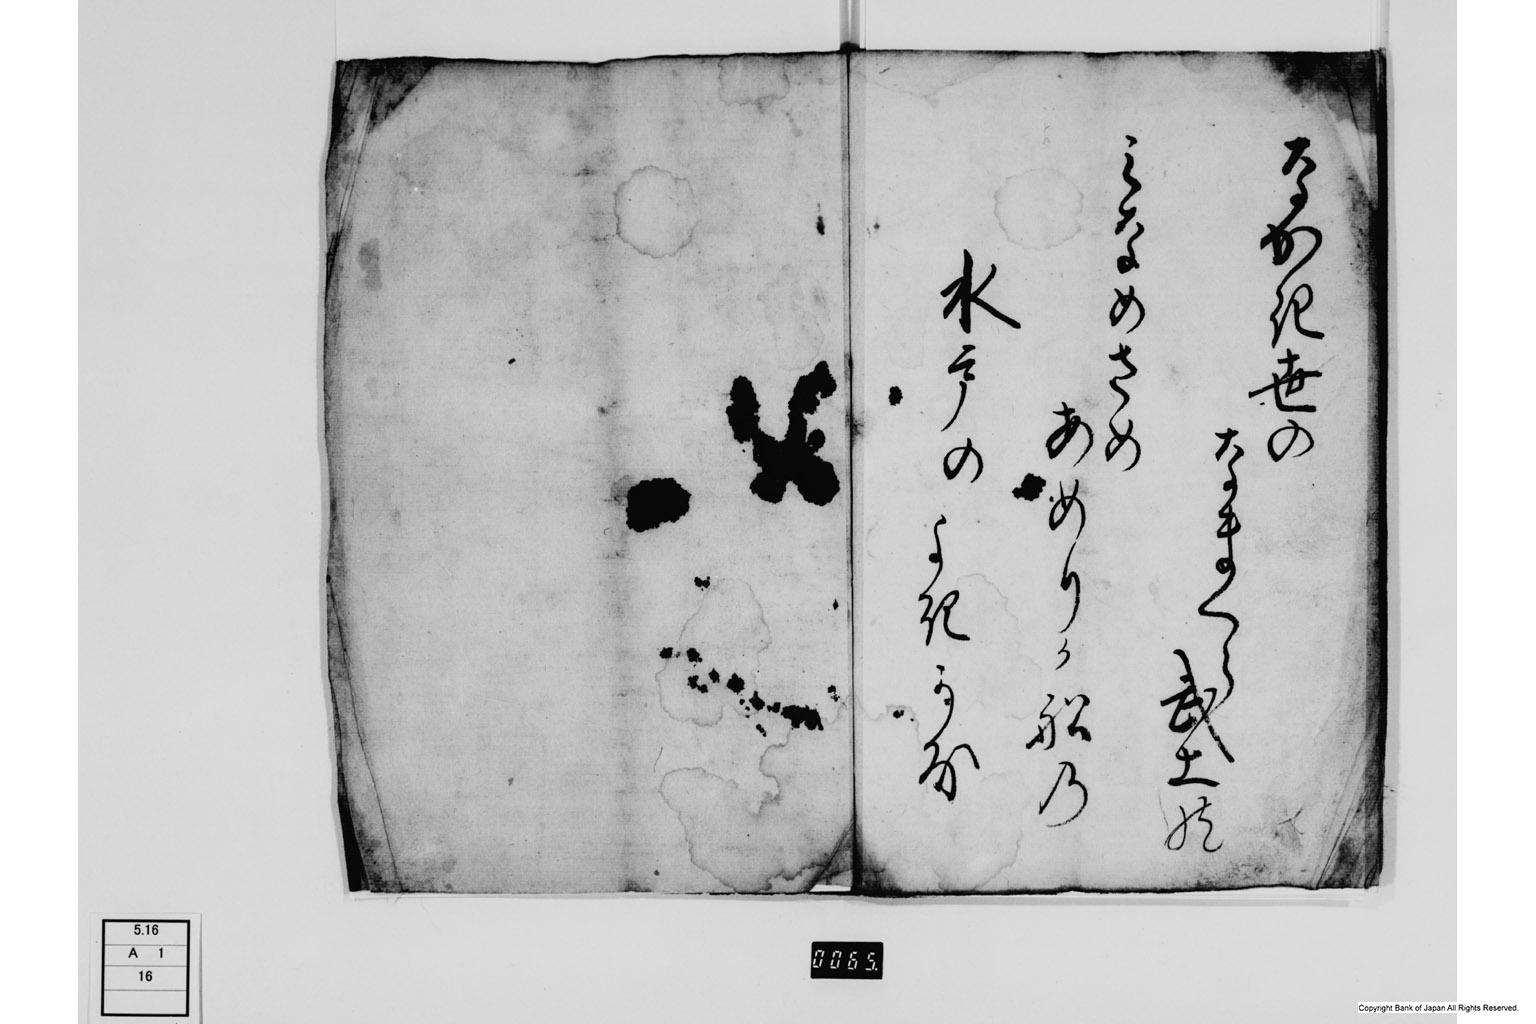 なか起世の
なまくら武士の
みなめさめ
あめりか船乃
水戸の
よ起可な
5.16
A 1
16
0065.
Copyright Bank of Japan All Rights Reserved.